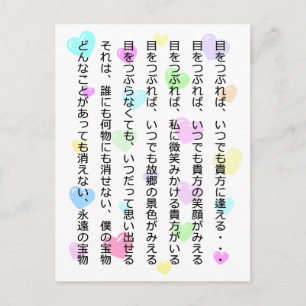 目をつぶれば、いつでも貴方に逢える・・・
目をつぶれば、いつでも貴方の笑顔がみえる
目をつぶれば、私に微笑みかける貴方がいる
目をつぶれば、いつでも故郷の景色がみえる
目をつぶらなくても、いつだって思い出せる
それは、誰にも何物にも消せない、僕の宝物
どんなことがあっても消えない、永遠の宝物